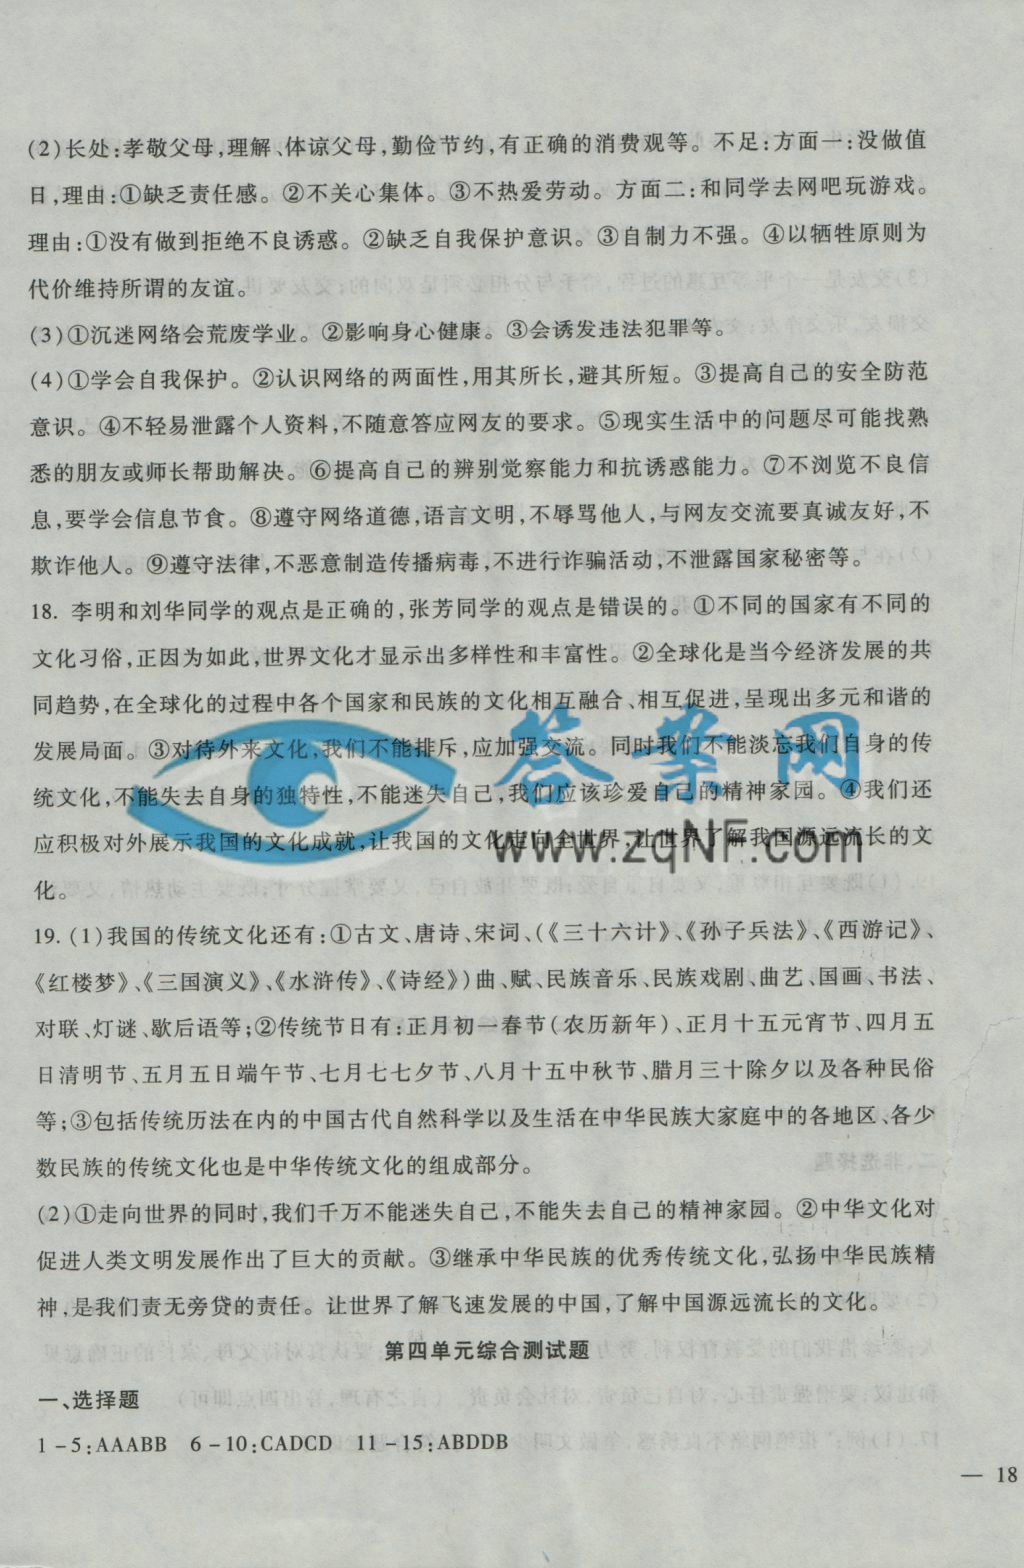 (2)长处:孝敬父母,理解、体谅父母,勤俭节约,有正确的消费观等。不足:方面一:没做值
日,理由:①缺乏责任感。②不关心集体。③不热爱劳动。方面二:和同学去网吧玩游戏。
理由:①没有做到拒绝不良诱惑。②缺乏自我保护意识。③自制力不强。④以牺牲原则为
代价维持所谓的友谊。
(3)①沉迷网络会荒废学业。②影响身心健康。③会诱发违法犯罪等。
(4)①学会自我保护。②认识网络的两面性,用其所长,避其所短。③提高自己的安全防范
意识。④不轻易泄露个人资料,不随意答应网友的要求。⑤现实生活中的问题尽可能找熟
悉的朋友或师长帮助解决。⑥提高自己的辨别觉察能力和抗诱惑能力。⑦不浏览不良信
息,要学会信息节食。⑧遵守网络道德,语言文明,不辱骂他人,与网友交流要真诚友好,不
欺诈他人。⑨遵守法律,不恶意制造传播病毒,不进行诈骗活动,不泄露国家秘密等。
18. 李明和刘华同学的观点是正确的,张芳同学的观点是错误的。①不同的国家有不同的
文化习俗,正因为如此,世界文化才显示出多样性和丰富性。②全球化是当今经济发展的共
同趋势,在全球化的过程中各个国家和民族的文化相互融合、相互促进,呈现出多元和谐的
发展局面。③对待外来文化,我们不能排斥,应加强交流。同时我们不能淡忘我们自身的传
统文化,不能失去自身的独特性,不能迷失自己,我们应该珍爱自己的精神家园。④我们还
应积极对外展示我国的文化成就,让我国的文化走向全世界,让世界了解我国源远流长的文
化。
答案网
www.zqNF.com
19. (1)我国的传统文化还有:①古文、唐诗、宋词、(《三十六计》、《孙子兵法》、《西游记》、
《红楼梦》、《三国演义》、《水浒传》、《诗经》)曲、赋、民族音乐、民族戏剧、曲艺、国画、书法、
对联、灯谜、歇后语等;②传统节日有:正月初一春节(农历新年)、正月十五元宵节、四月五
日清明节、五月五日端午节、七月七七夕节、八月十五中秋节、腊月三十除夕以及各种民俗
等;③包括传统历法在内的中国古代自然科学以及生活在中华民族大家庭中的各地区、各少
数民族的传统文化也是中华传统文化的组成部分。
(2)①走向世界的同时,我们千万不能迷失自己,不能失去自己的精神家园。②中华文化对
促进人类文明发展作出了巨大的贡献。③继承中华民族的优秀传统文化,弘扬中华民族精
神,是我们责无旁贷的责任。让世界了解飞速发展的中国,了解中国源远流长的文化。
第四单元综合测试题
一、选择题
1-5:AAABB 6-10:CADCD 11-15:ABDDB
— 18